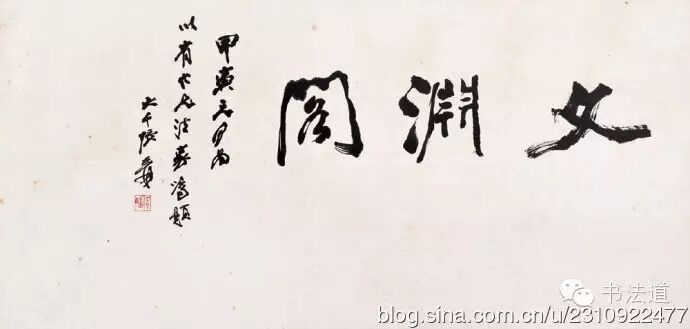 文淵閣
甲寅元月為
以有兄法題
大千張爰
书法道
blog.sina.com.cn/u/2310922477